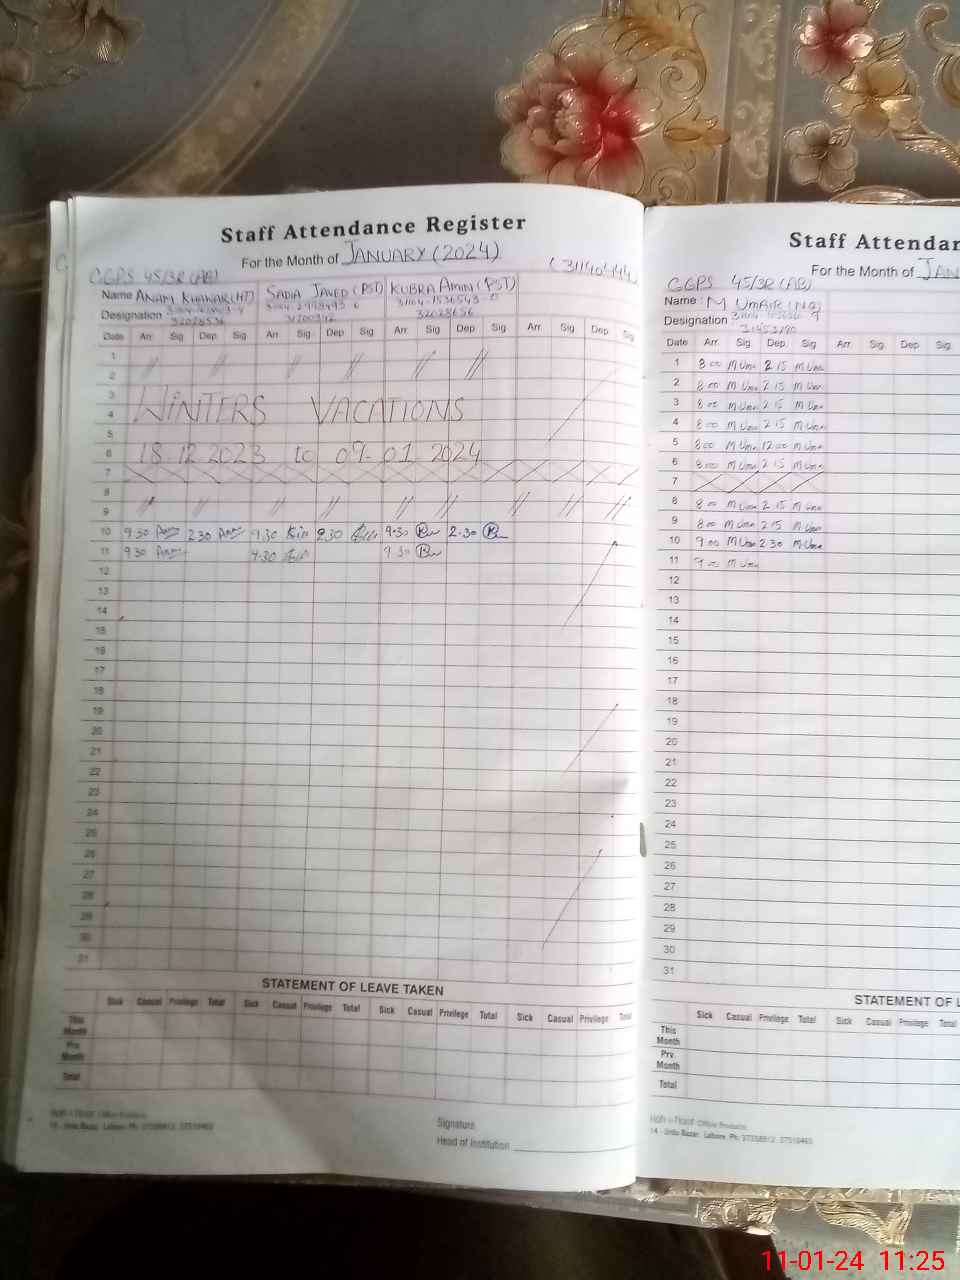 Staff Attendance Register
For the Month of JANUARY (2024)
(31140444)
GGPS 45/3R (AB)
Name ANAM KHAWAR (HT) SADIA JAVED (PST) KUBRA AMIN (PST)
Designation 32028656
Date Arr Sig Dep Sig Arr Sig Dep Sig Arr Sig Dep Sig Arr Sig Dep Sig
1
2
3
WINTERS VACATIONS
4
5
6 18.12.2023 to 09-01 2024
7
8
9
10 9.30 2.30 9.30 2.30 9.30 2.30
11 9.30 9.30 9.30
12
13
14
15
16
17
18
19
20
21
22
23
24
25
26
27
28
29
30
31
STATEMENT OF LEAVE TAKEN
Sick Casual Privilege Total Sick Casual Privilege Total Sick Casual Privilege Total Sick Casual Privilege Total
This Month
Prv. Month
Total
Office Products
14 - Urdu Bazar, Lahore. Ph: 37358912, 37510465
Signature
Head of Institution
Staff Attendan
For the Month of JAN
GGPS 45/3R (AB)
Name : M UMAIR (NQ)
Designation
Date Arr. Sig Dep. Sig Arr. Sig. Dep. Sig
1 8 00 M Uma 2 15 M Uma
2 8 00 M Uma 2 15 M Uma
3 8 00 M Uma 2 15 M Uma
4 8 00 M Uma 2 15 M Uma
5 8 00 M Uma 12 00 M Uma
6 8 00 M Uma 2 15 M Uma
7
8 8 00 M Uma 2 15 M Uma
9 8 00 M Uma 2 15 M Uma
10 9 00 M Uma 2 30 M Uma
11 9 00 M Uma
12
13
14
15
16
17
18
19
20
21
22
23
24
25
26
27
28
29
30
31
STATEMENT OF L
Sick Casual Privilege Total Sick Casual Privilege Total
This Month
Prv. Month
Total
Office Products
14 - Urdu Bazar, Lahore. Ph: 37358912, 37510465
11-01-24 11:25